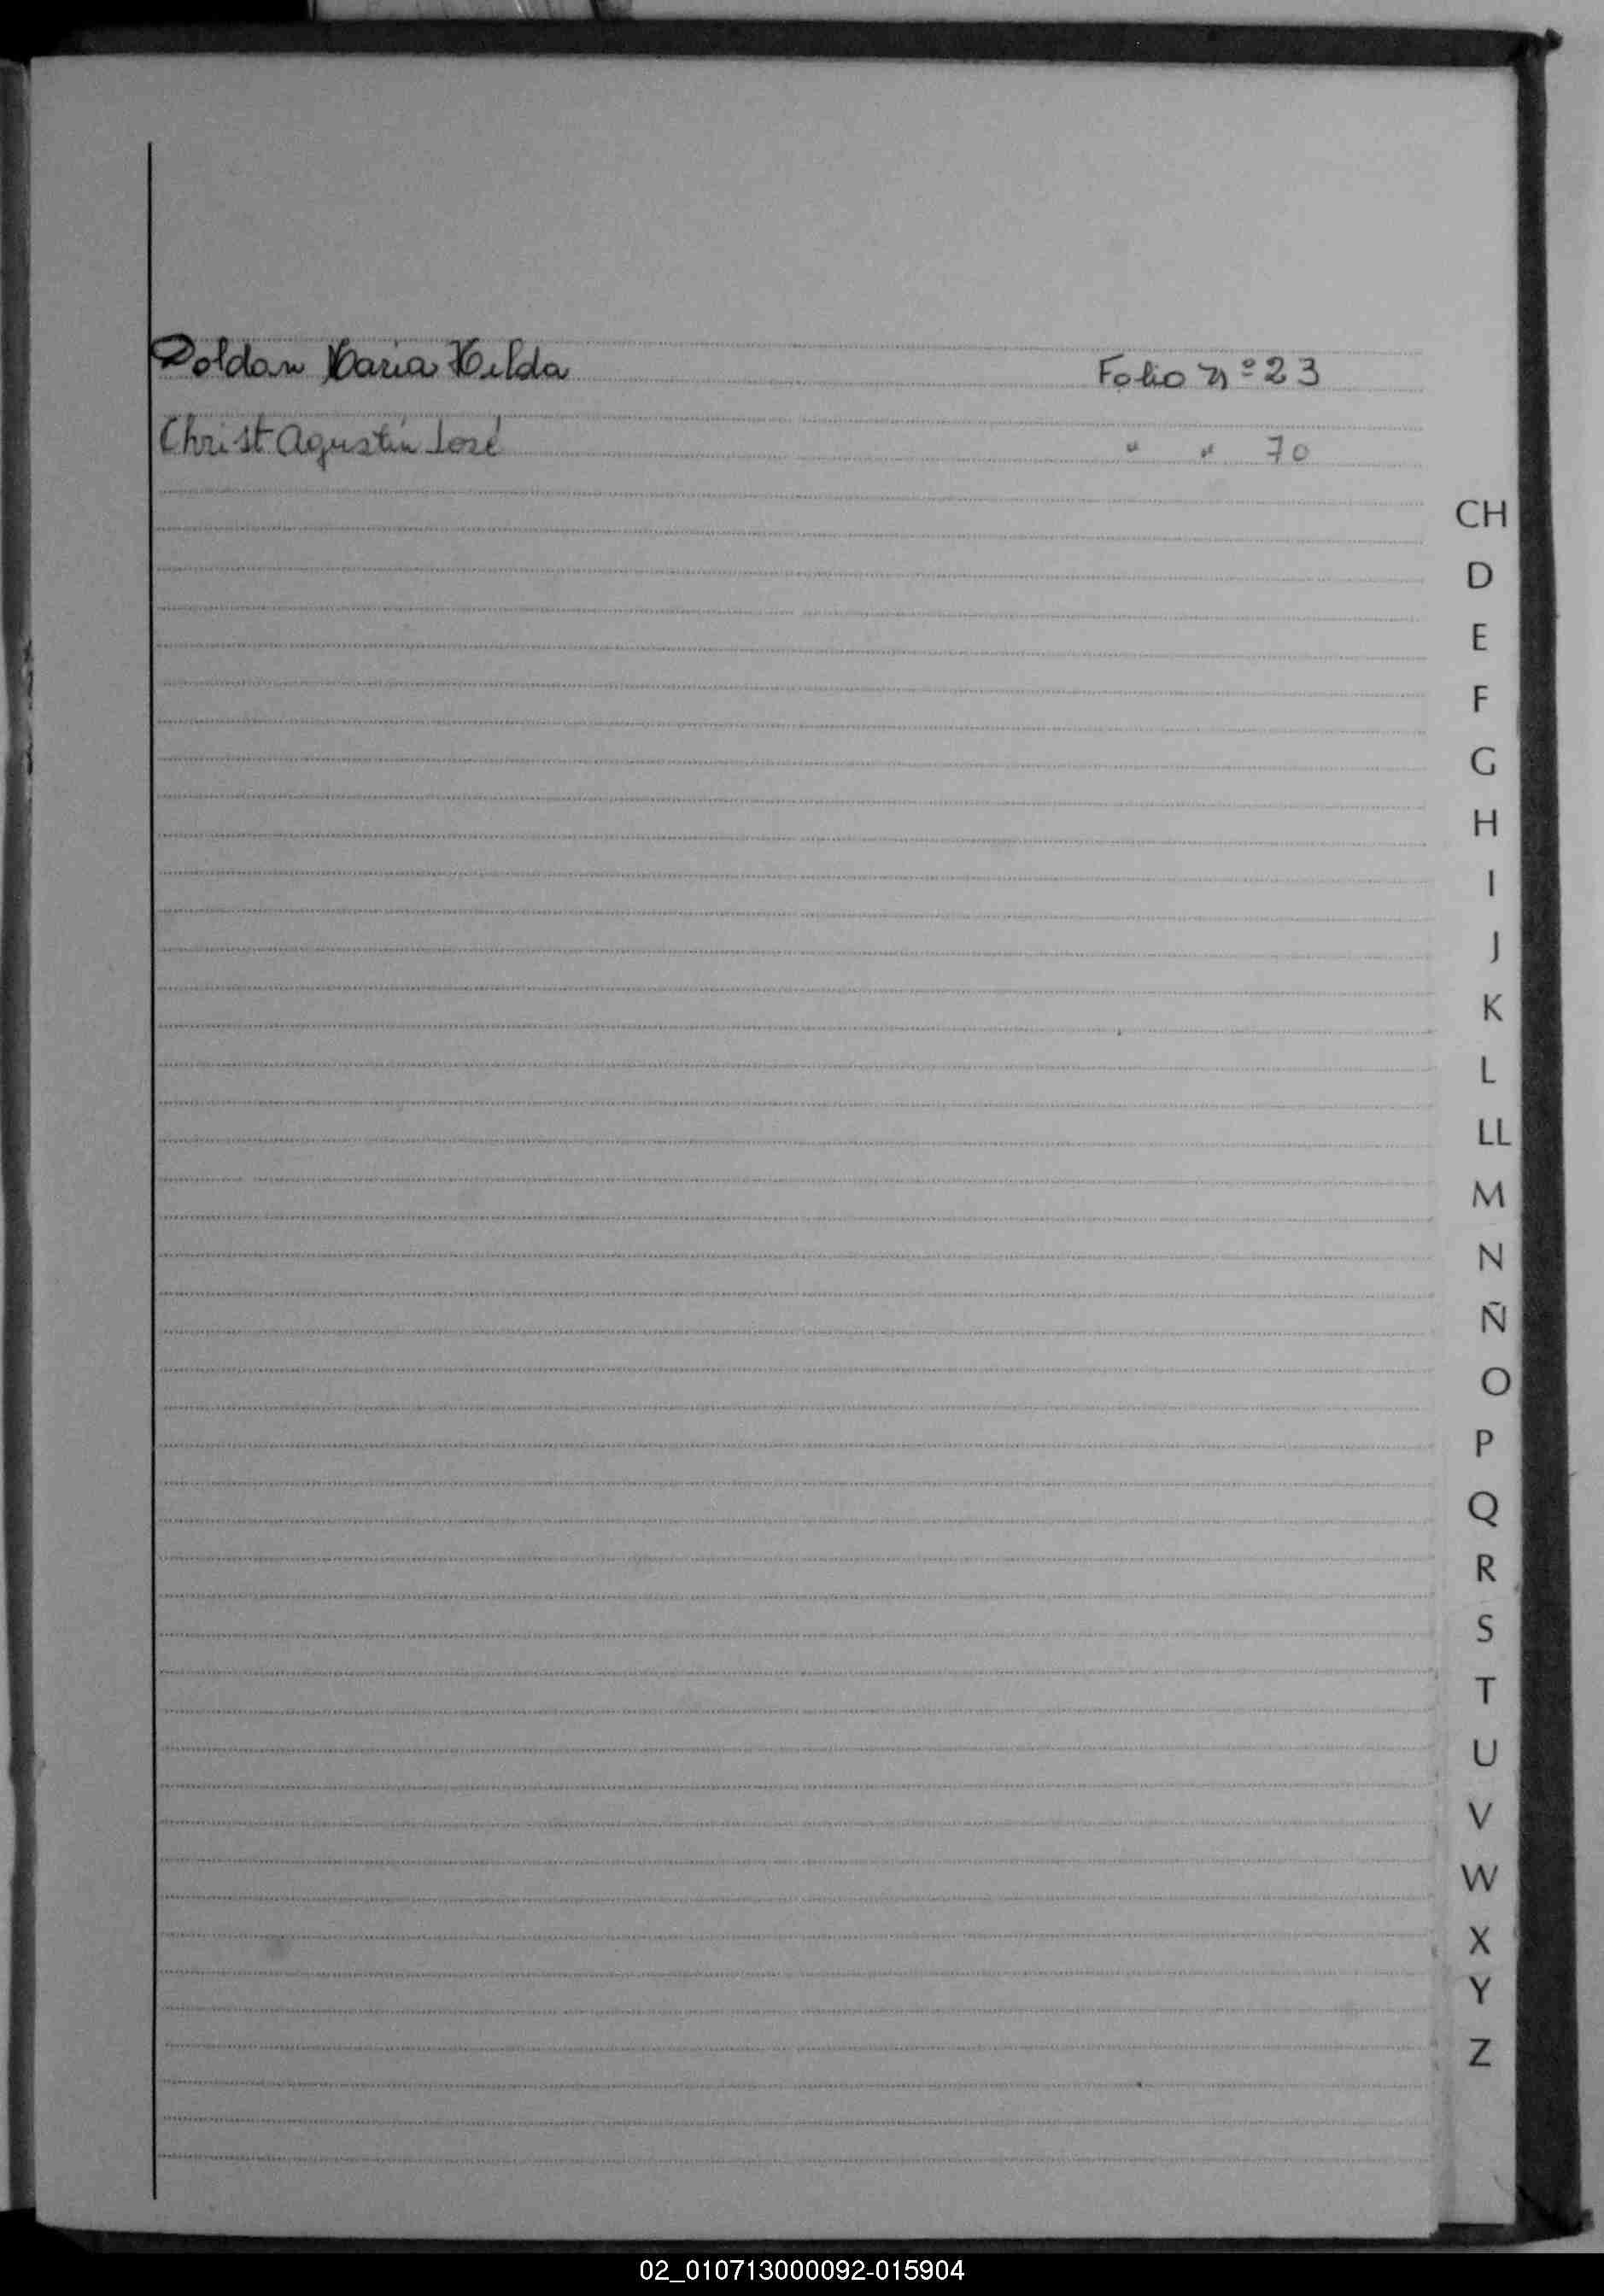 Doldan Maria Hilda Folio nº 23
Christ Agustín José " " 70
CH
D
E
F
G
H
I
J
K
L
LL
M
N
Ñ
O
P
Q
R
S
T
U
V
W
X
Y
Z
02_010713000092-015904